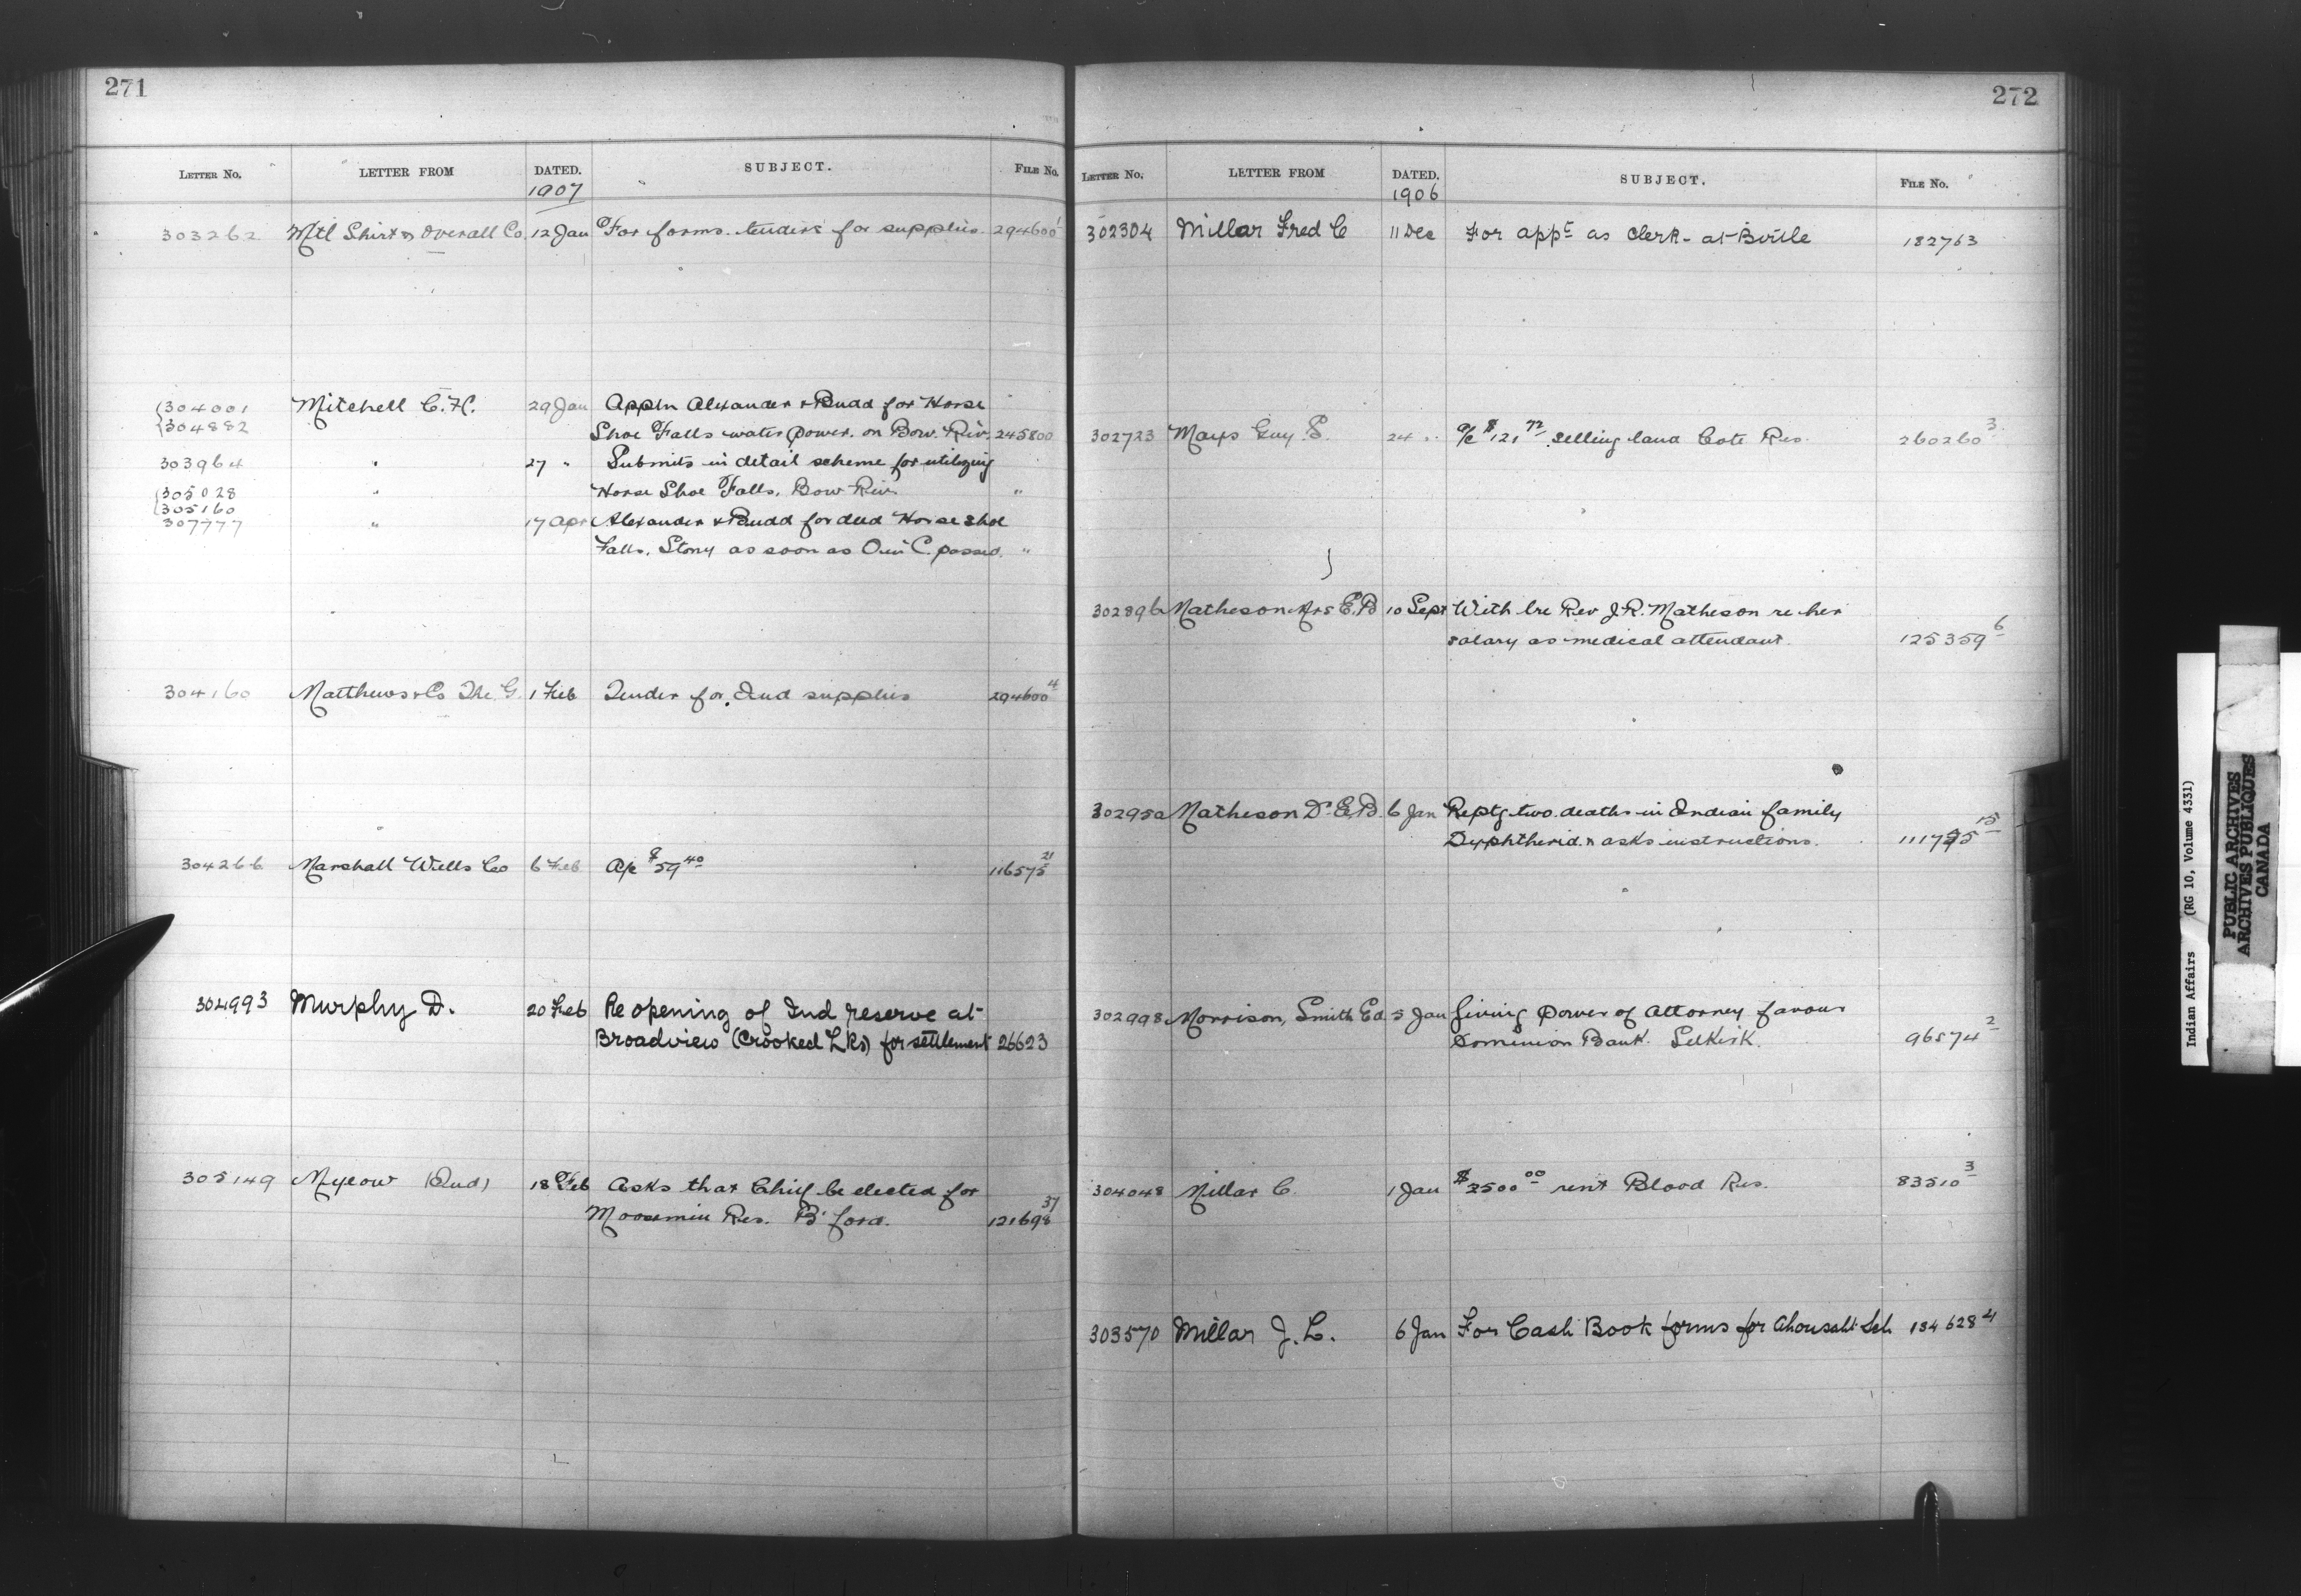 271
LETTER No. LETTER FROM DATED. SUBJECT. FILE No.
1907
303262 Mtl Shirt & Overall Co. 12 Jan For forms. tenders for supplies 294600 1
304001 Mitchell C.H. 29 Jan Appln Alexander & Budd for Horse
304882 Shoe Falls water power. on Bow. Riv. 245800
303964 " 27 " Submits in detail scheme for utilizing
305028 " Horse Shoe Falls. Bow Riv. "
305160
307777 " 17 Apr Alexander & Budd for deed Horse shoe
Falls. Stony as soon as O in C. passed. "
304160 Matthews & Co The G. 1 Feb Tender for Ind supplies 294600 4
304266 Marshall Wells Co 6 Feb A/c $59 40 116575 21
304993 Murphy D. 20 Feb Re opening of Ind reserve at
Broadview (Crooked Lks) for settlement 26623
305149 Myeow (Ind) 18 Feb Asks that Chief be elected for
Moosomin Res. B'ford. 121698 37
272
LETTER No. LETTER FROM DATED. SUBJECT. FILE No.
1906
302304 Millar Fred C 11 Dec For appt as Clerk - at Birtle 182763
302723 Mays Guy S. 24 " a/c $121 72 selling land Cote Res. 260260 3
302896 Matheson Mrs E.B 10 Sept With lre Rev J.R. Matheson re her
salary as medical attendant. 125359 6
302950 Matheson Dr E.B. 6 Jan Reptg. two deaths in Indian family
Dyphtheria & asks instructions. 15
302998 Morrison, Smith Ed 5 Jan Giving power of Attorney favour
Dominion Bank. Selkirk. 96574 2
304048 Millar C. 1 Jan $2500 00 rent Blood Res. 83510 3
303570 Millar J.L. 6 Jan For Cash Book forms for Ahousaht Sch 154628 4
Indian Affairs (RG 10, Volume 4331)
PUBLIC ARCHIVES
ARCHIVES PUBLIQUES
CANADA